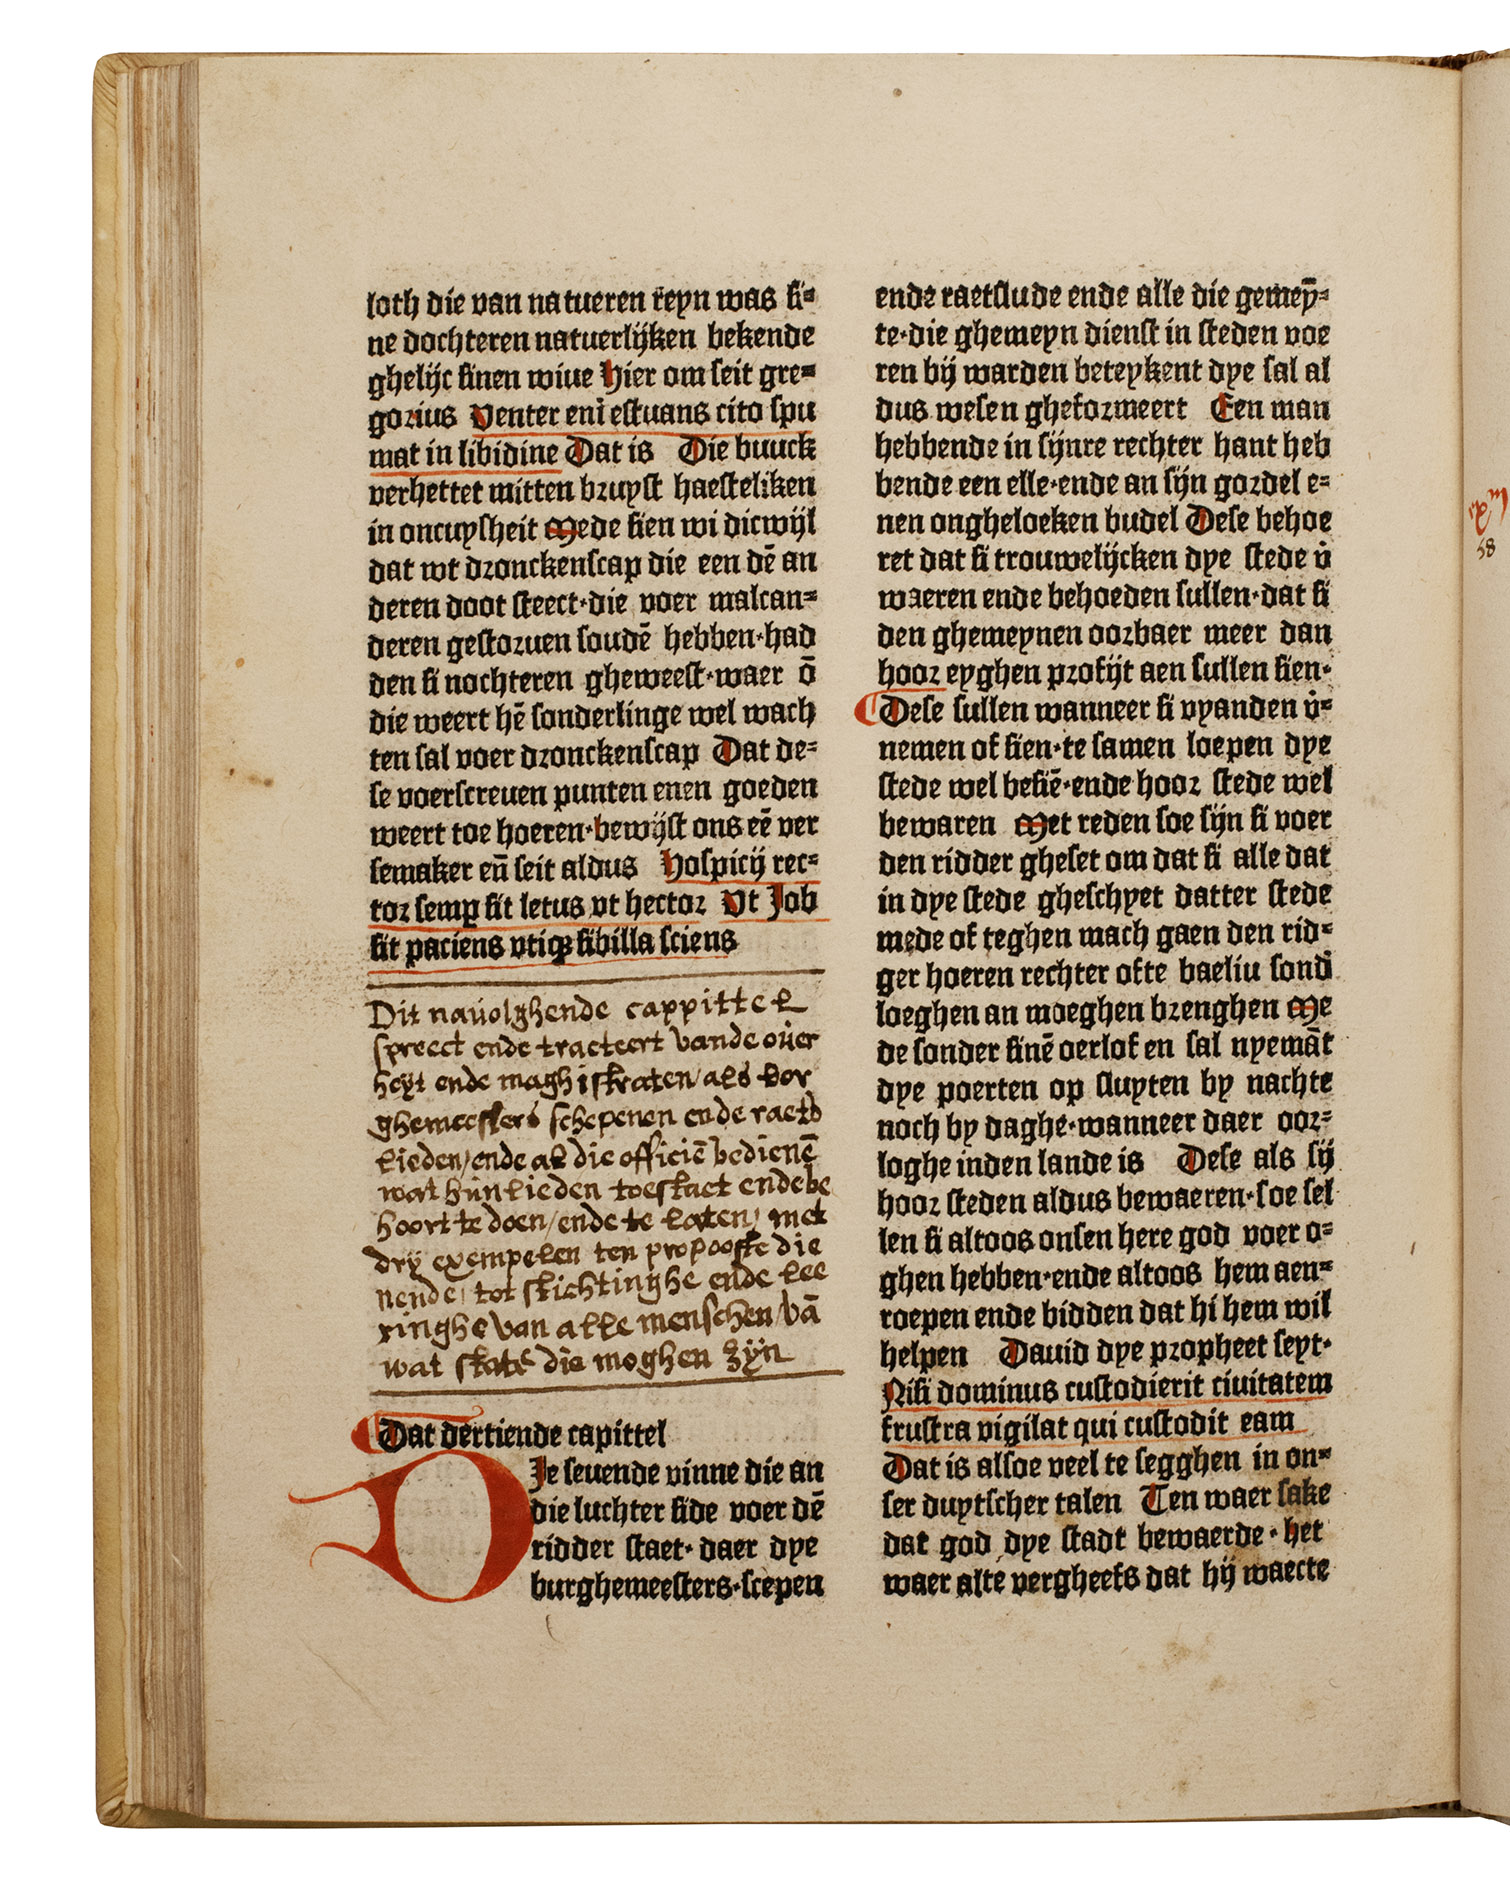 loth die van natueren reyn was si⸗
ne dochteren natuerlijken bekende
ghelijc sinen wiue Hier om seit gre⸗
gorius Venter enī estuans cito spu
mat in libidine Dat is Die buuck
verhettet mitten bruyst haesteliken
in oncuysheit Mede sien wi dicwijl
dat wt dronckenscap die een dē an
deren doot steect·die voer malcan⸗
deren gestoruen soudē hebben·had
den si nochteren gheweest·waer ō
die weert hē sonderlinge wel wach
ten sal voer dronckenscap Dat de⸗
se voerscreuen punten enen goeden
weert toe hoeren·bewijst ons eē ver
semaker eñ seit aldus Hospicij rec⸗
tor semꝑ sit letus vt hector Vt Job
sit paciens vtiqꝫ sibilla sciens
Dit navolghende cappittel
spreect ende tracteert vande over
heyt ende maghistraten/als bor
ghemeesters schepenen ende raeds
lieden/ende al die officiē bedienē
wat hunlieden toestaet ende be
hoort te doen/ende te laten/met
dry exempelen ten propooste die
nende/tot stichtinghe ende lee
ringhe van alle menschen/vā
wat state die moghen zÿn
Dat dertiende capittel
DJe seuende vinne die an
die luchter side voer dē
ridder staet·daer dye
burghemeesters·scepen
ende raetslude ende alle die gemeȳ⸗
te·die ghemeyn dienst in steden voe
ren bij warden beteykent dye sal al
dus wesen gheformeert Een man
hebbende in sijnre rechter hant heb
bende een elle·ende an sijn gordel e⸗
nen ongheloeken budel Dese behoe
ret dat si trouwelijcken dye stede v̄
waeren ende behoeden sullen·dat si
den ghemeynen oorbaer meer dan
hoor eyghen profijt aen sullen sien·
Dese sullen wanneer si vyanden v̄⸗
nemen of sien·te samen loepen dye
stede wel besiē·ende hoor stede wel
bewaren Met reden soe sijn si voer
den ridder gheset om dat si alle dat
in dye stede gheschyet datter stede
mede of teghen mach gaen den rid⸗
ger hoeren rechter ofte baeliu sond̄
loeghen an moeghen brenghen Me
de sonder sinē oerlof en sal nyemāt
dye poerten op sluyten by nachte
noch by daghe·wanneer daer oor⸗
loghe inden lande is Dese als sij
hoor steden aldus bewaeren·soe sel
len si altoos onsen here god voer o⸗
ghen hebben·ende altoos hem aen⸗
roepen ende bidden dat hi hem wil
helpen Dauid dye propheet seyt·
Nisi dominus custodierit ciuitatem
frustra vigilat qui custodit eam
Dat is alsoe veel te segghen in on⸗
ser duytscher talen Ten waer sake
dat god dye stadt bewaerde·het
waer alte vergheefs dat hij waecte
58